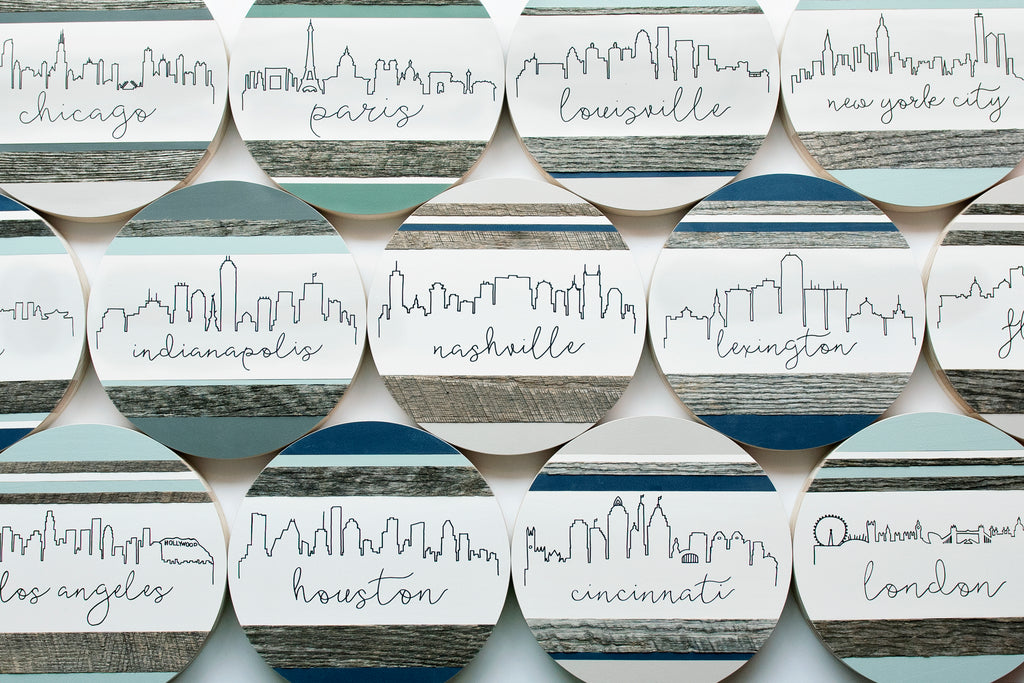 chicago
paris
louisville
new york city
indianapolis
nashville
lexington
HOLLYWOOD
los angeles
houston
cincinnati
london